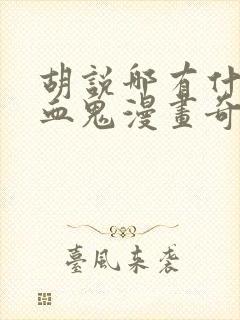 胡說那有什
血鬼漫畫奇
臺風來袭